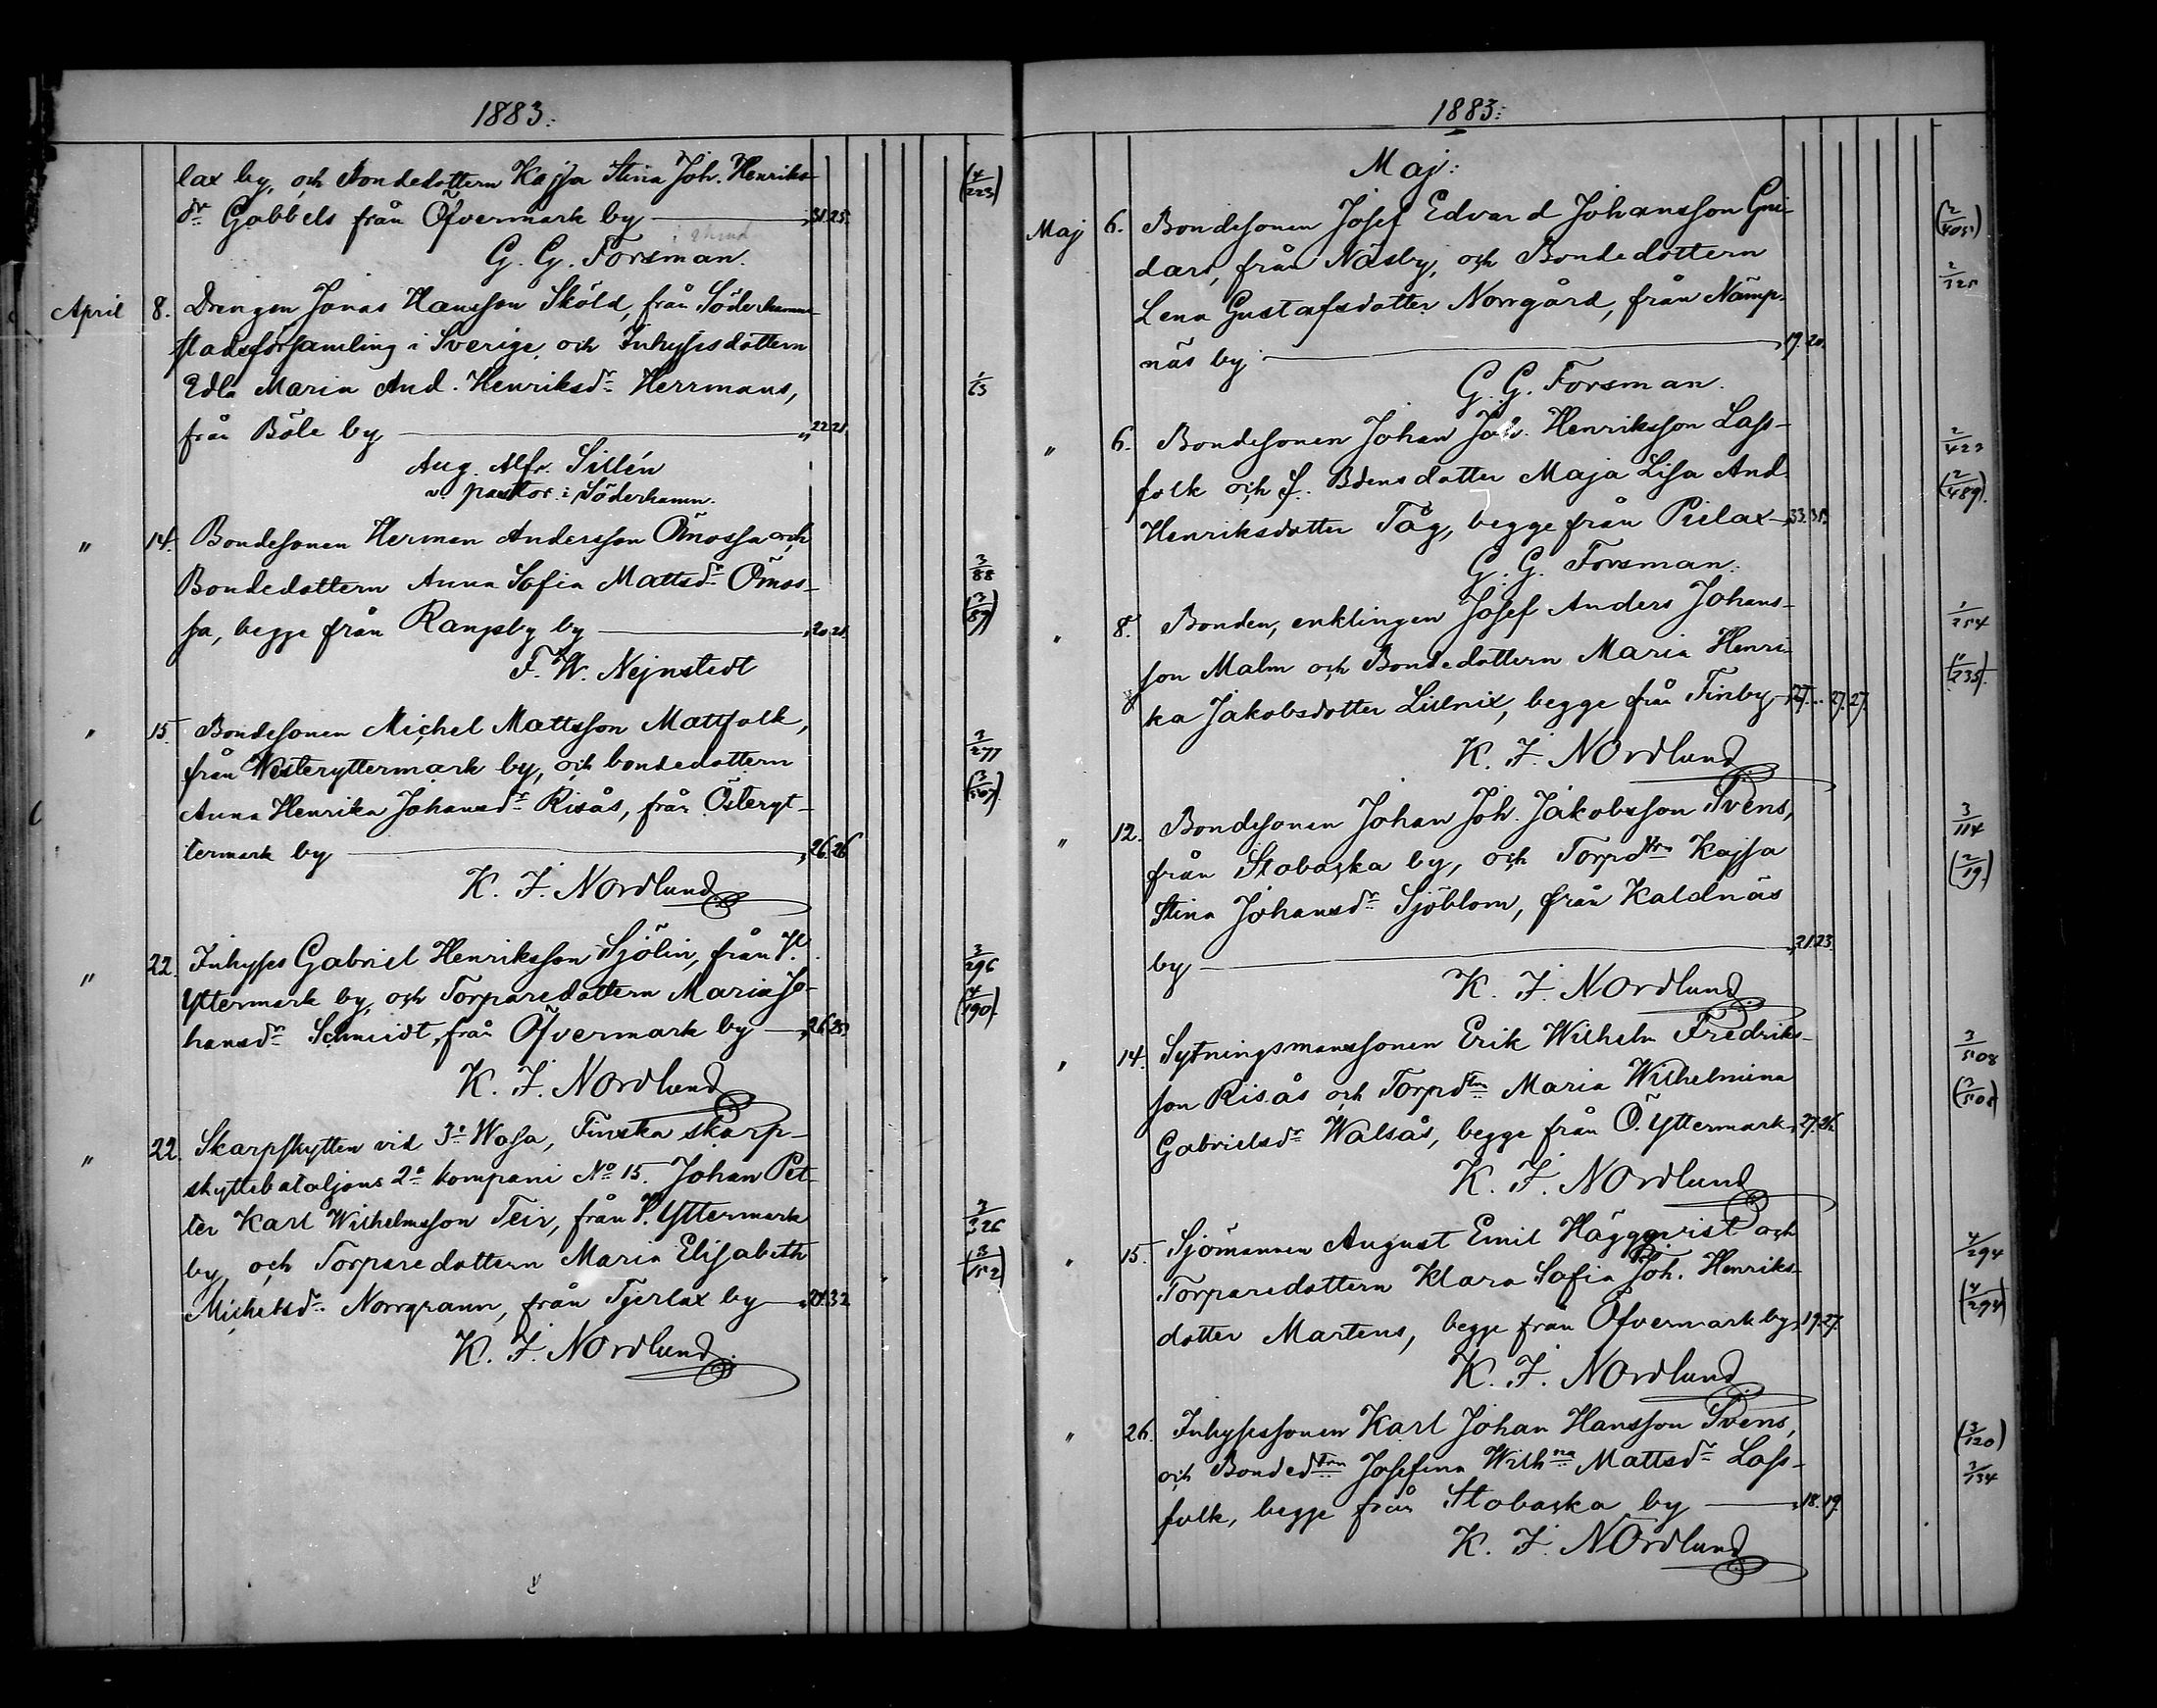 1883.
lax by, och Bondedottern Kajsa Stina Joh. Henriks-
dr Gabbels från Öfvermark by — „ 31. 25.
(4/223)
G. G. Forsman.
April 8. Drengen Jonas Hansson Sköld, från Söderhamns
stadsförsamling i Sverige och Inhysesdottern
Edla Maria And. Henriksdr Herrmans,
från Böle by — „ 22. 21.
Aug. Alfr. Sillén
v. pastor i Söderhamn.
„ 14. Bondesonen Herman Andersson Ömossa och
Bondedottern Anna Sofia Mattsdr Ömos- 3/88
sa, begge från Rangsby by — „ 20. 21. (3/89)
F. W. Nejnstedt
„ 15. Bondesonen Michel Mattsson Mattfolk,
från Westeryttermark by, och bondedottern 3/277
Anna Henrika Johansdr Risås, frånÖsteryt-
termark by — „ 26. 26
K. J. Nordlund
„ 22. Inhyses Gabriel Henriksson Sjölin, från W. 3/296
Yttermark by, och Torparedottern Maria Jo- (4/190)
hansdr Schmidt, från Öfvermark by — „ 26. 25.
K. J. Nordlund
„ 22. Skarpskytten vid 3e Wasa, Finska skarp-
skyttebataljons 2a kompani No 15. Johan Pet-
ter Karl Wilhelmsson Teir, från W. Yttermark 3/326
by, och Torparedottern Maria Elisabeth (3/152)
Michelsdr Norrgrann, från Tjerlax by — 32
K. J. Nordlund
1883:
Maj:
Maj 6. Bondesonen Josef Edvard Johansson Gui-
dars, från Näsby, och Bondedottern
Lena Gustafsdotter Norrgård, från Nämp-
näs by — „ 19. 20.
G. G. Forsman.
„ 6. Bondesonen Johan Joh. Henriksson Lass- 2/423
folk och f. Bdens dotter Maja Lisa And. (2/489)
Henriksdotter Tåg, begge från Pielax — 33.
G. G. Forsman.
„ 8. Bonden, enklingen Josef Anders Johans- 1/254
son Malm och Bondedottern Maria Henri- (1/235)
ka Jakobsdotter Lillnix, begge från Finby — 27. 27. 27.
K. J. Nordlund
„ 12. Bondesonen Johan Joh. Jakobsson Svens, 3/114
från Stobacka by, och Torpdtrn Kajsa (2/19)
Stina Johansdr Sjöblom, från Kaldnäs
by — „ 21. 23.
K. J. Nordlund
„ 14. Sytningsmanssonen Erik Wilhelm Fredriks- 3/508
son Risås och Torpdtrn Maria Wilhelmina (3/508)
Gabrielsdr Walsås, begge från Ö. Yttermark „ 27. 26.
K. J. Nordlund
„ 15. Sjömannen August Emil Häggqvist och 4/294
Torparedottern Klara Sofia Joh. Henriks- (4/294)
dotter Martens, begge från Öfvermark by „ 19. 27.
K. J. Nordlund
„ 26. Inhysessonen Karl Johan Hansson Svens, (3/120)
och Bondedtrn Josefina Wilhna Mattsdr Lass- 3/134
folk, begge från Stobacka by — „ 18. 19.
K. J. Nordlund